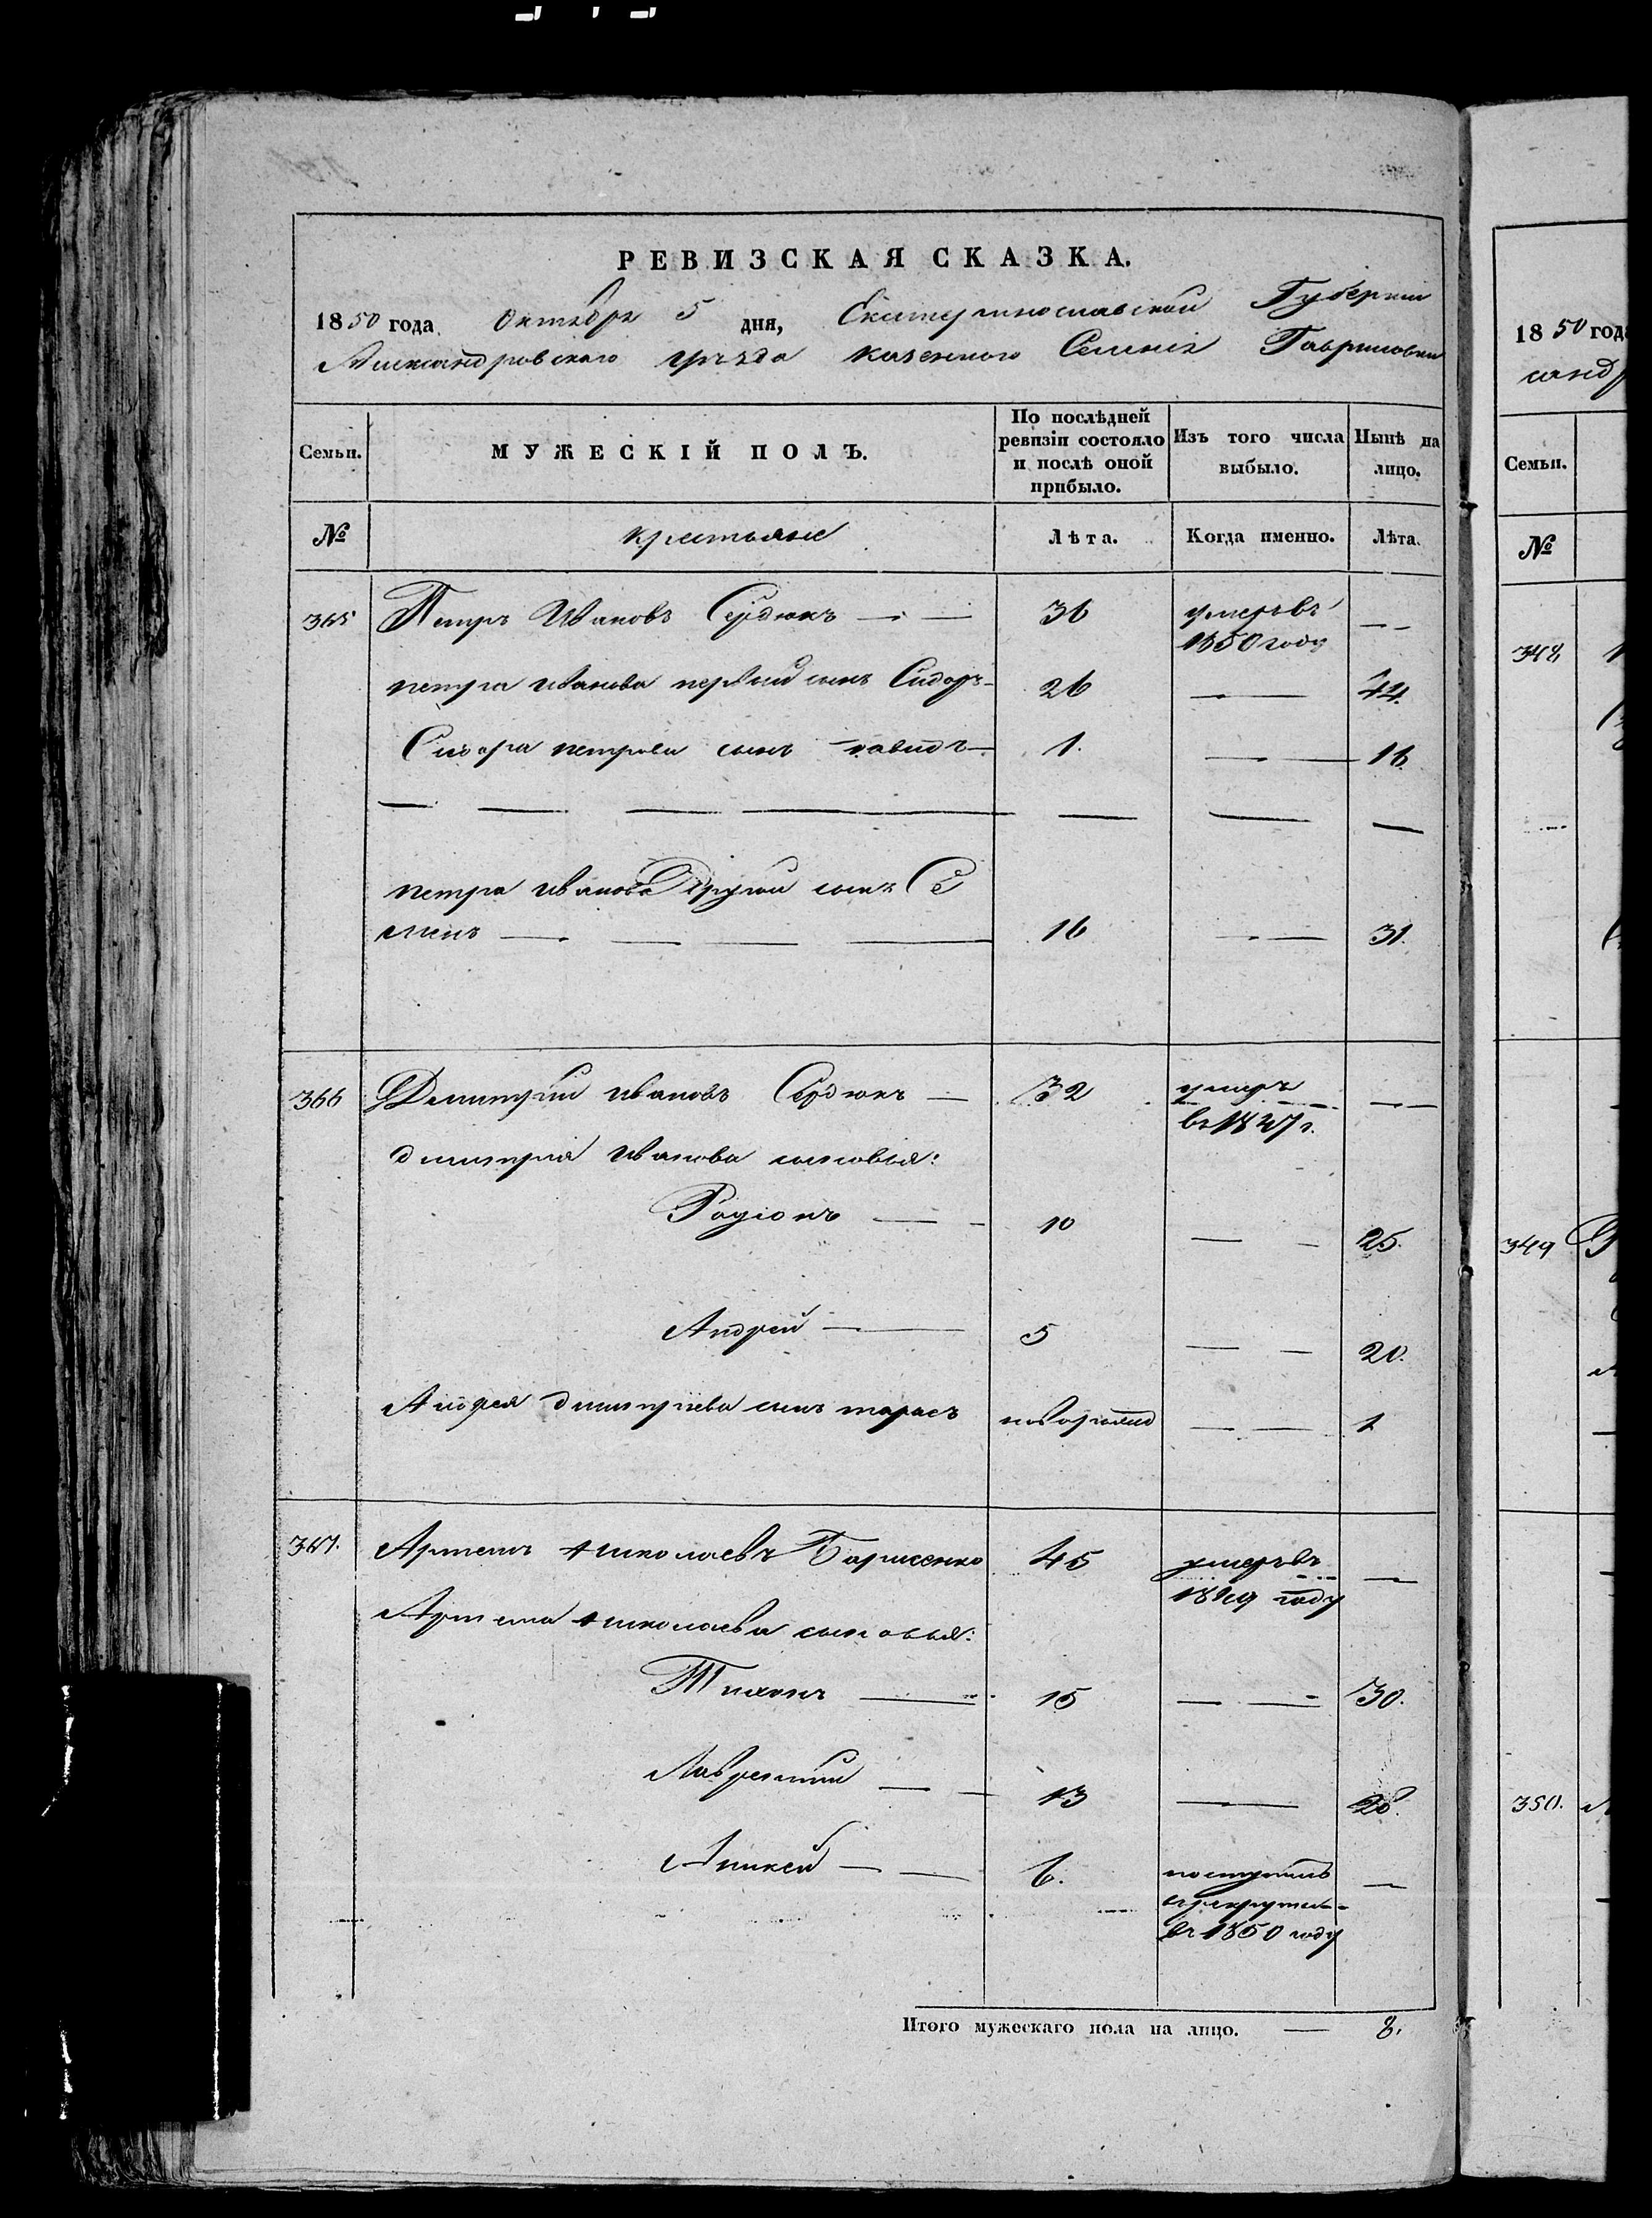 РЕВИЗСКАЯ СКАЗКА.
1850 года Октября 5 дня, Екатеринославской Губернии
Александровскаго уѣзда казенного Селенія Гавриловки
Семьи. МУЖЕСКІЙ ПОЛЪ. По послѣдней ревизіи состояло и послѣ оной прибыло. Изъ того числа выбыло. Нынѣ на лицо.
№ крестьяне Лѣта. Когда именно. Лѣта.
365 Петръ Ивановъ Сердюкъ — — 36 умеръ въ 1850 году — —
петра иванова первый сынъ Сидоръ — 26 — 44.
Сидора петрова сынъ давидъ — 1. — 16.
петра иванова Другой сынъ Се
менъ — 16 — — 31.
366 Дмитрій ивановъ Сердюкъ — 32 умеръ въ 1847 г. — —
дмитрія иванова сыновья:
Родіонъ — 10 — — 25.
Андрей — 5 — — 20.
Андрея дмитріева сынъ тарасъ новорожд — — 1
367. Артемъ николаевъ Борисенко 45 умеръ въ 1849 году —
Артема николаева сыновья:
Тихонъ — 15 — — 30.
Лаврентій — 13 — 28.
Аникей — 6. поступилъ
в рекруты
въ 1850 году —
Итого мужескаго пола на лицо. — 8.
1850 года
санд
Семьи.
№
348
349
350.